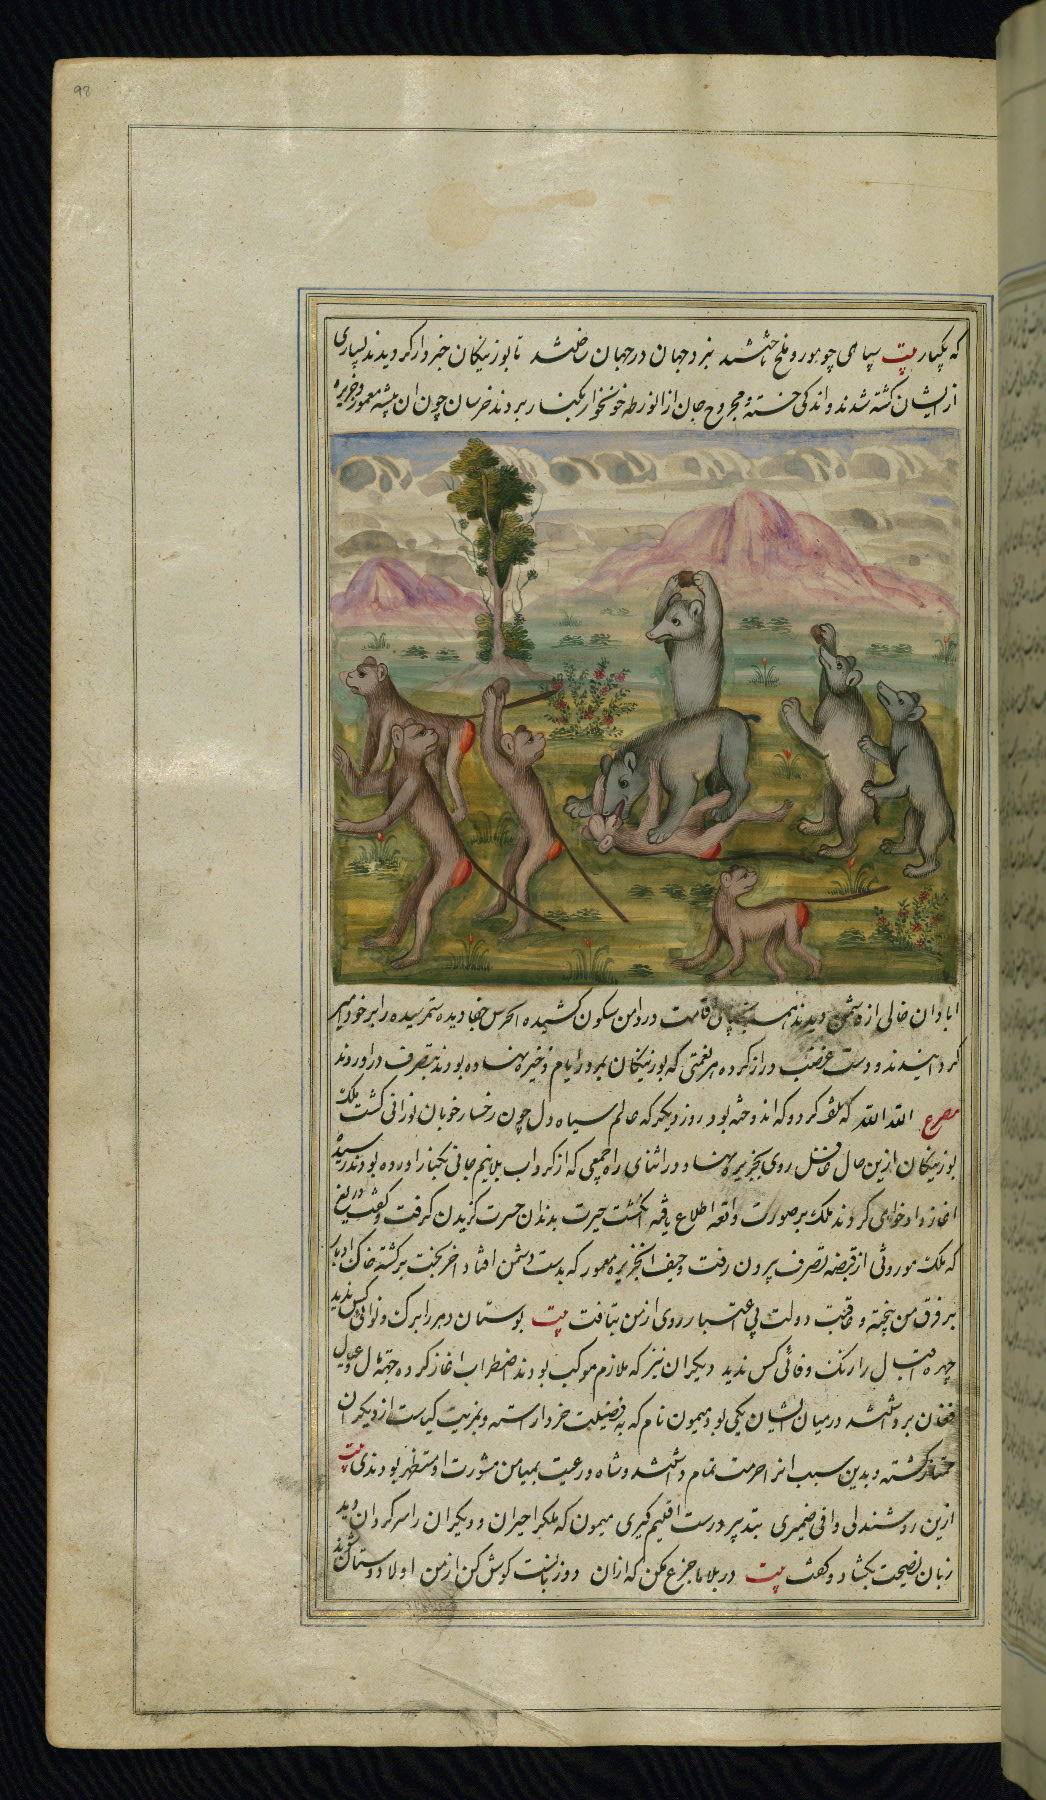 ٩٨
که یکبار بیت سپاهی چو مور و ملخ تاختند نبرد جهان در جهان ساختند تا بوزینگان خبردار کردیدند بسیاری
از ایشان کشته شدند و اندکی خسته و مجروح جان از ان ورطه خونخوار بکنار بردند خرسان چون ان بیشه معمور و جزیره
ابادان خالی از دشمن دیدند همانجا پای اقامت در دامن سکون کشیده خرس جفا دیده ستمرسیده را بر خود امیر
کردانیدند و دست غضب دراز کرده هر نعمتی که بوزینکان بمرور ایام ذخیره نهاده بودند بتصرف دراوردند
مصرع الله الله که تلف کرد و که اندوخته بود روز دیکر که عالم سیاه دل چون رخسار خوبان نورانی کشت ملک
بوزینکان ازین حال غافل روی بجزیره نهاد در اثنای راه جمعی که از کرداب بلا نیم جانی بکنار اورده بودند رسیده
اغاز دادخواهی کردند ملک بر صورت واقعه اطلاع یافته انکشت حیرت بدندان حسرت کزیدن کرفت و کفت دریغ
که ملک موروثی از قبضه تصرف بیرون رفت و حیف از جزیره معمور که بدست دشمن افتاد اخر بخت برکشته خاک ادبار
بر فرق من بیخته و عاقبت دولت بی اعتبار روی از من بتافت بیت بوستان دهر را برک و نوائی کس ندید
چهره اقبال را رنک وفائی کس ندید دیکران نیز که ملازم موکب بودند اضطراب اغاز کرده جهته مال و عیال
در میان ایشان یکی بود میمون نام که به فضیلت خرد اراسته و بمزیت کیاست از دیکران
ممتاز کشته و بدین سبب او را حرمت تمام داشتند و شاه و رعیت بمیامن مشورت او مستظهر بودندی بیت
ازین روشندلی وافی ضمیری بتدبیر درست اقلیم کیری میمون که ملک را حیران و دیکران را سرکردان دید
زبان نصیحت بکشاد و کفت بیت در بلاها جزع مکن که ازان دو زیانست کوش کن از من اولا دوستان شوند